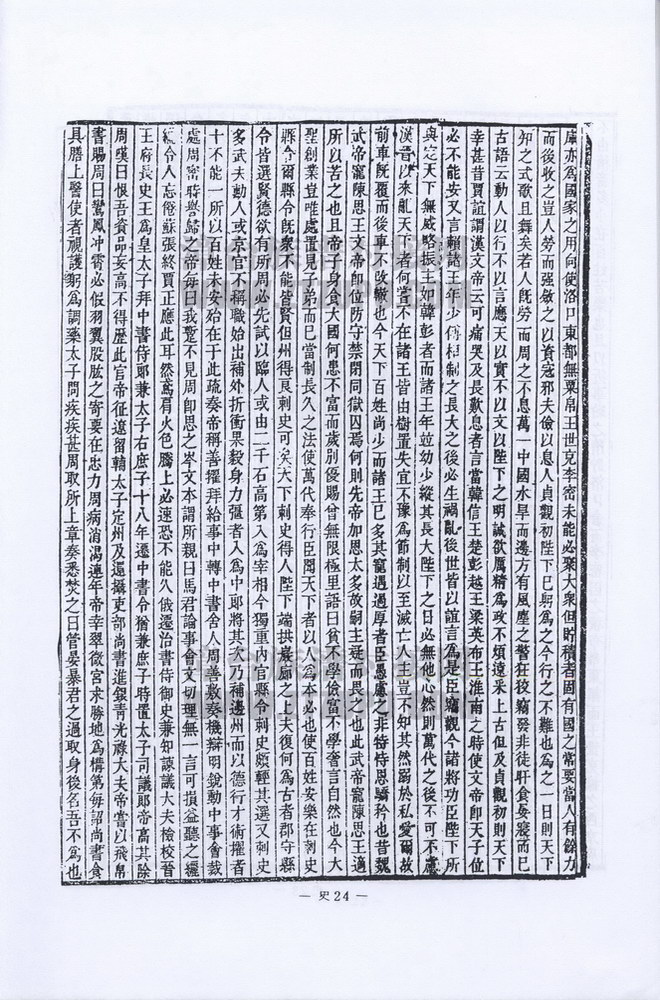 庫亦爲國家之用向使洛口東都無粟帛王世充李密未能必聚大衆但貯積者固有國之常要當人有餘力
而後收之豈人勞而强斂之以資寇邪夫儉以息人貞觀初陛下已躬爲之今行之不難也爲之一日則天下
知之式歌且舞矣若人旣勞而用之不息萬一中國水旱而邊方有風塵之警狂狡竊發非徒旰食晏寢而已
古語云動人以行不以言應天以實不以文以陛下之明誠欲厲精爲政不煩遠采上古但及貞觀初則天下
幸甚昔賈誼謂漢文帝云可痛哭及長歎息者言當韓信王楚彭越王梁英布王淮南之時使文帝卽天子位
必不能安又言賴諸王年少傅相制之長大之後必生禍亂後世皆以誼言爲是臣竊觀今諸將功臣陛下所
與定天下無威略振主如韓彭者而諸王年竝幼少縱其長大陛下之日必無他心然則萬代之後不可不慮
漢晉以來亂天下者何嘗不在諸王皆由樹置失宜不豫爲節制以至滅亡人主豈不知其然溺於私愛爾故
前車旣覆而後車不改轍也今天下百姓尚少而諸王已多其寵遇過厚者臣愚慮之非特恃恩驕矜也昔魏
武帝寵陳思王文帝卽位防守禁閉同獄囚焉何則先帝加恩太多故嗣主疑而畏之也此武帝寵陳思王適
所以苦之也且帝子身食大國何患不富而歲別優賜曾無限極里語曰貧不學儉富不學奢言自然也今大
聖創業豈唯處置見子弟而已當制長久之法使萬代奉行臣聞天下者以人爲本必也使百姓安樂在刺史
縣令爾縣令旣衆不能皆賢但州得良刺史可矣天下刺史得人陛下端拱巖廊之上夫復何爲古者郡守縣
令皆選賢德欲有所用必先試以臨人或由二千石高第入爲宰相今獨重內官縣令刺史頗輕其選又刺史
多武夫勳人或京官不稱職始出補外折衝果毅身力彊者入爲中郞將其次乃補邊州而以德行才術擢者
十不能一所以百姓未安殆在于此疏奏帝稱善擢拜給事中轉中書舍人周善敷奏機辯明銳動中事會裁
處周密時譽歸之帝每曰我蹔不見周卽思之岑文本謂所親曰馬君論事會文切理無一言可損益聽之纚
纚令人忘倦蘇張終賈正應此耳然鳶肩火色騰上必速恐不能久俄遷治書侍御史兼知諫議大夫檢校晉
王府長史王爲皇太子拜中書侍郞兼太子右庶子十八年遷中書令猶兼庶子時置太子司議郞帝高其除
周嘆曰恨吾資品妄高不得歷此官帝征遼留輔太子定州及還攝吏部尚書進銀青光祿大夫帝嘗以飛帛
書賜周曰鸞鳳沖霄必假羽翼股肱之寄要在忠力周病消渴連年帝幸翠微宮求勝地爲構第每詔尚書食
具膳上醫使者視護躬爲調藥太子問疾疾甚周取所上章奏悉焚之曰管晏暴君之過取身後名吾不爲也
— 史24 —